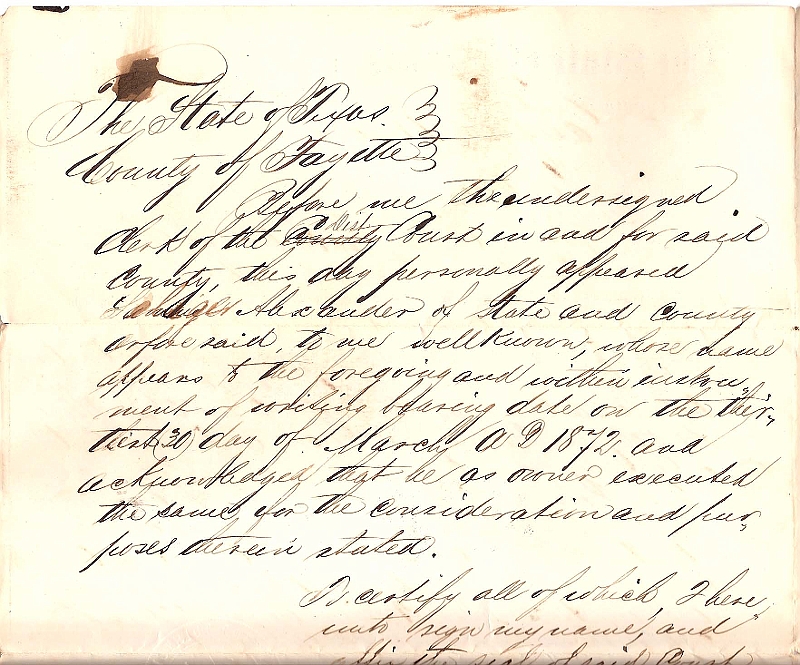 The State of Texas.
County of Fayette
Before me the undersigned
Clerk of the County Dist Court in and for said
County, this day personally appeared
Alexander of State and County
afore said, to me well known, whose name
appears to the foregoing and within instru
ment of writing bearing date on the thir„
tieth (30) day of March A D 1872. and
acknowledged that he as owner executed
the same, for the consideration and pur„
poses therein stated.
To certify all of which, I here„
unto sign my name, and
affix the seal of said Court